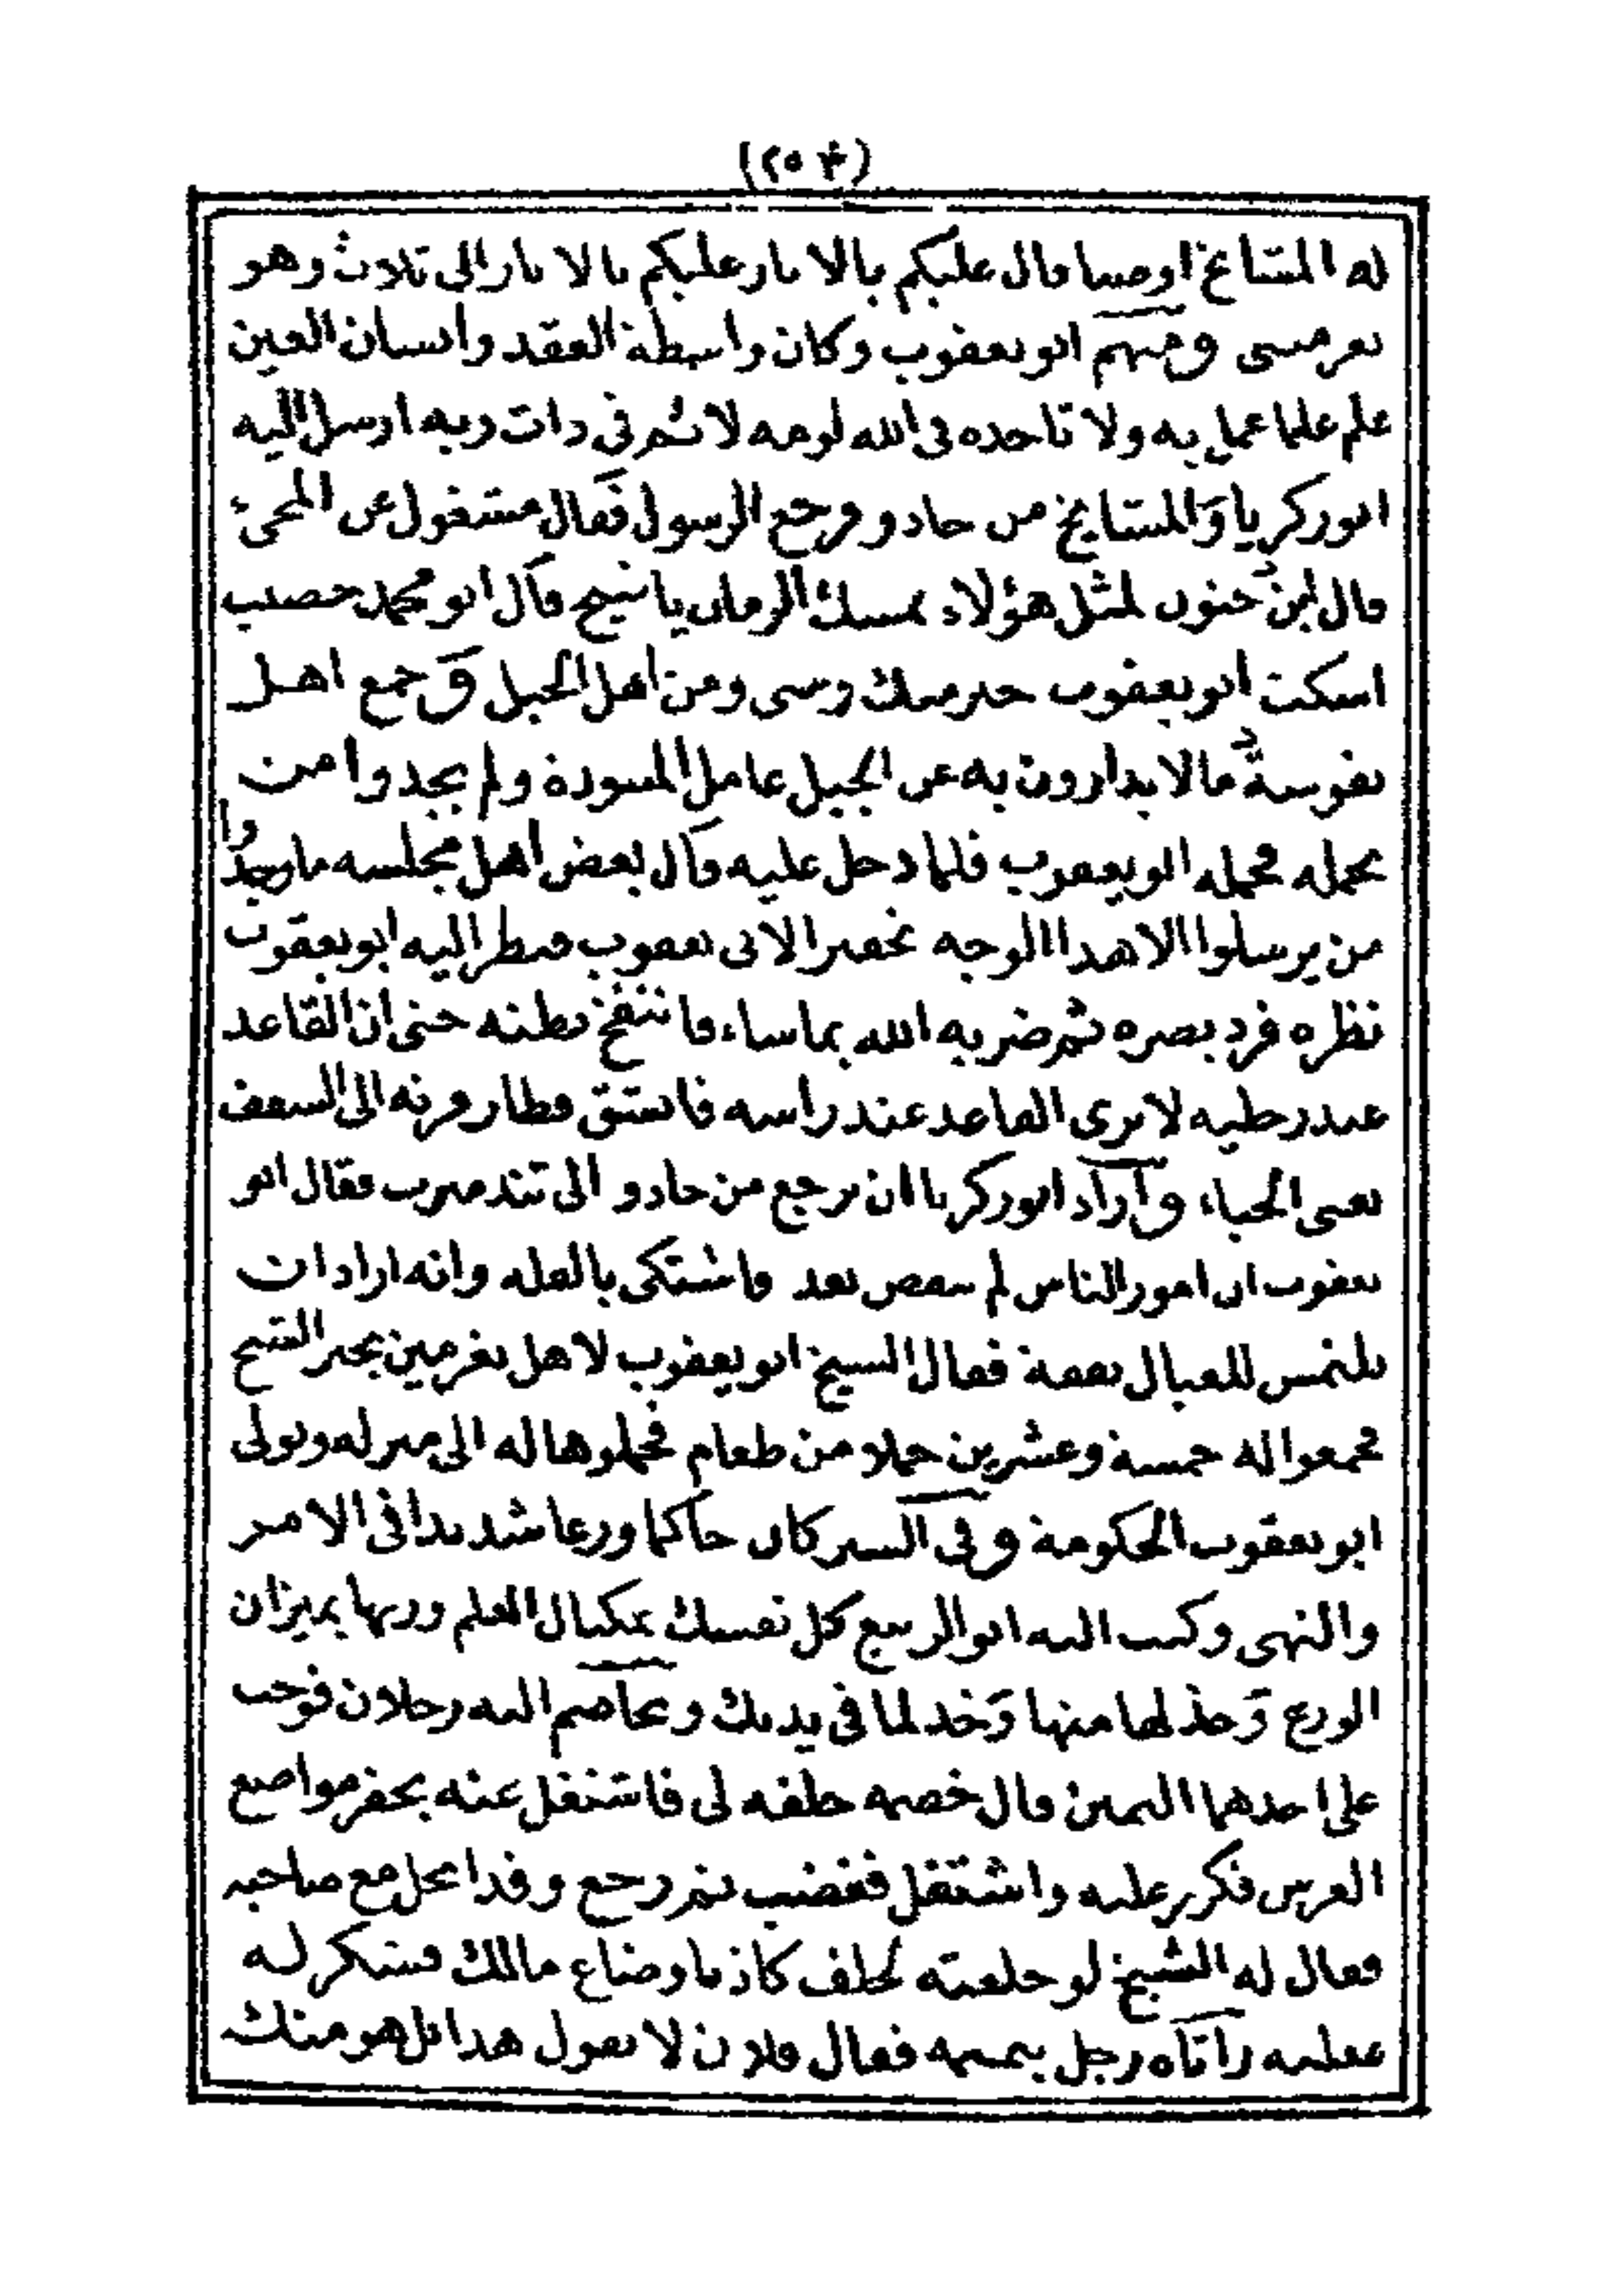 (٢٥٣)
له المشايخ اوصنا قال عليكم بالاثار عليكم بالاثار الى ثلاث وهو
نفرميى ومنهم ابو يعقوب وكان واسطة العقد وانسان العين
علم علما عمل به ولا تاخده فى الله لومه لائم فى ذات ربه ارسل اليه
ابو زكريا والمشايخ من جادو فرجع الرسول فقال مشغول عن المجئ
قال ابن جنون لمثل هؤلاء نمسك الزمان يا شيخ قال ابو محمد خصيب
اسكت ابو يعقوب خير منك ومنى ومن اهل الجبل وجمع اهل
نفوسة مالا يدارون به عن الجبل عامل المسودة ولم يجدوا من
يحمله فحمله ابو يعقوب فلما دخل عليه قال بعض اهل مجلسه ما وجدوا
من يرسلوا الا هدا الوجه تحقيرا لابى يعقوب فنظر اليه ابو يعقوب
نظره فرد بصره ثم ضربه الله بما شاء فانتفخ بطنه حتى ان القاعد
عند رجليه لا يرى القاعد عند راسه فانشق فطار فرثه الى السقف
يعنى الحياء واراد ابو زكريا ان يرجع من جادو الى تندميرت فقال ابو
يعقوب ان امور الناس لم تنقض بعد فاشتكى بالعله وانه اراد ان
يلتمس للعيال نفقة فقال الشيخ ابو يعقوب لاهل نفرمين بخبر الشيخ
فجمعوا له خمسة وعشرين حملا من طعام فحملوها له الى منزله وتولى
ابو يعقوب الحكومة وفى السير كان حاكما ورعا شديدا فى الامر
والنهى وكتب اليه ابو الربيع كل نفسك بمكيال العلم وزنها بميزان
الورع وخذ لها منها وخد لما فى يديك وتخاصم اليه رجلان فوجب
على احدهما اليمين قال خصمه حلفه لى فاشتغل عنه بحفر مواضع
الغرس فكرر عليه واشتغل فغضب ثم رجع وقد انحل مع صاحبه
فقال له الشيخ لو حلفته لحلف كاذبا وضاع مالك فشكر له
فعلمه واتاه رجل بنميمه فقال فلان لا يقول هدا بل هو منك